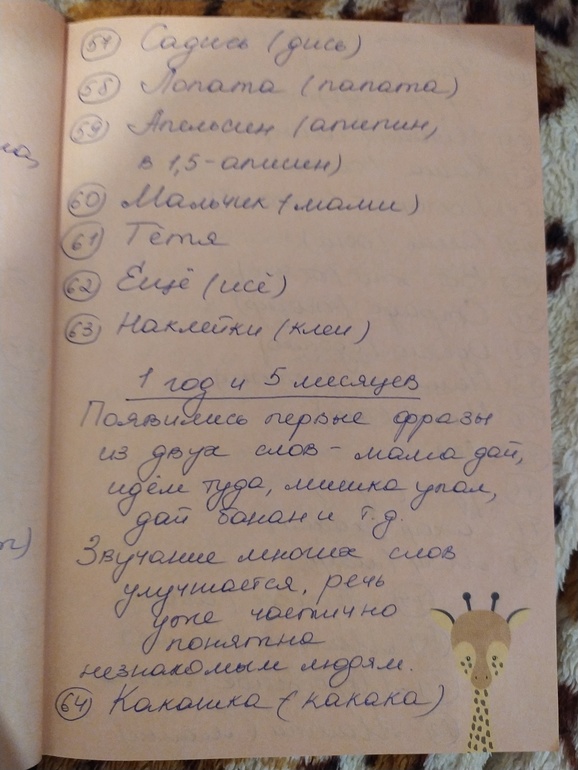 57 Садись (дись)
58 Лопата (папата)
59 Апельсин (апипин,
в 1,5-аписин)
60 Мальчик (мами)
61 Тётя
62 Ещё (исё)
63 Наклейки (клеи)
1 год и 5 месяцев
Появились первые фразы
из двух слов - мама дай,
идём туда, мишка упал,
дай банан и т.д.
Звучание многих слов
улучшается, речь
уже частично
понятна
незнакомым людям.
64 Какашка (какака)